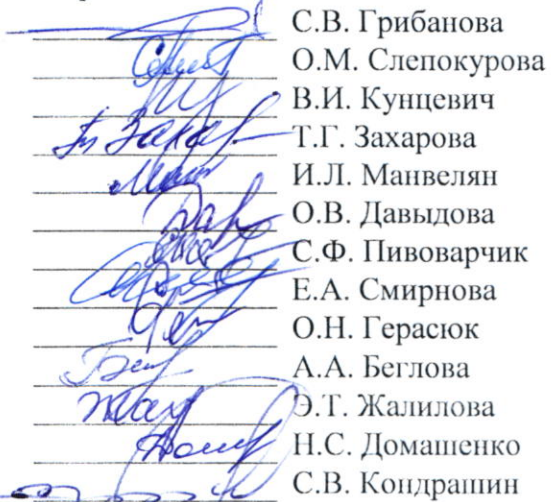 С.В. Грибанова
О.М. Слепокурова
В.И. Кунцевич
Т.Г. Захарова
И.Л. Манвелян
О.В. Давыдова
С.Ф. Пивоварчик
Е.А. Смирнова
О.Н. Герасюк
А.А. Беглова
Э.Т. Жалилова
Н.С. Домашенко
С.В. Кондрашин